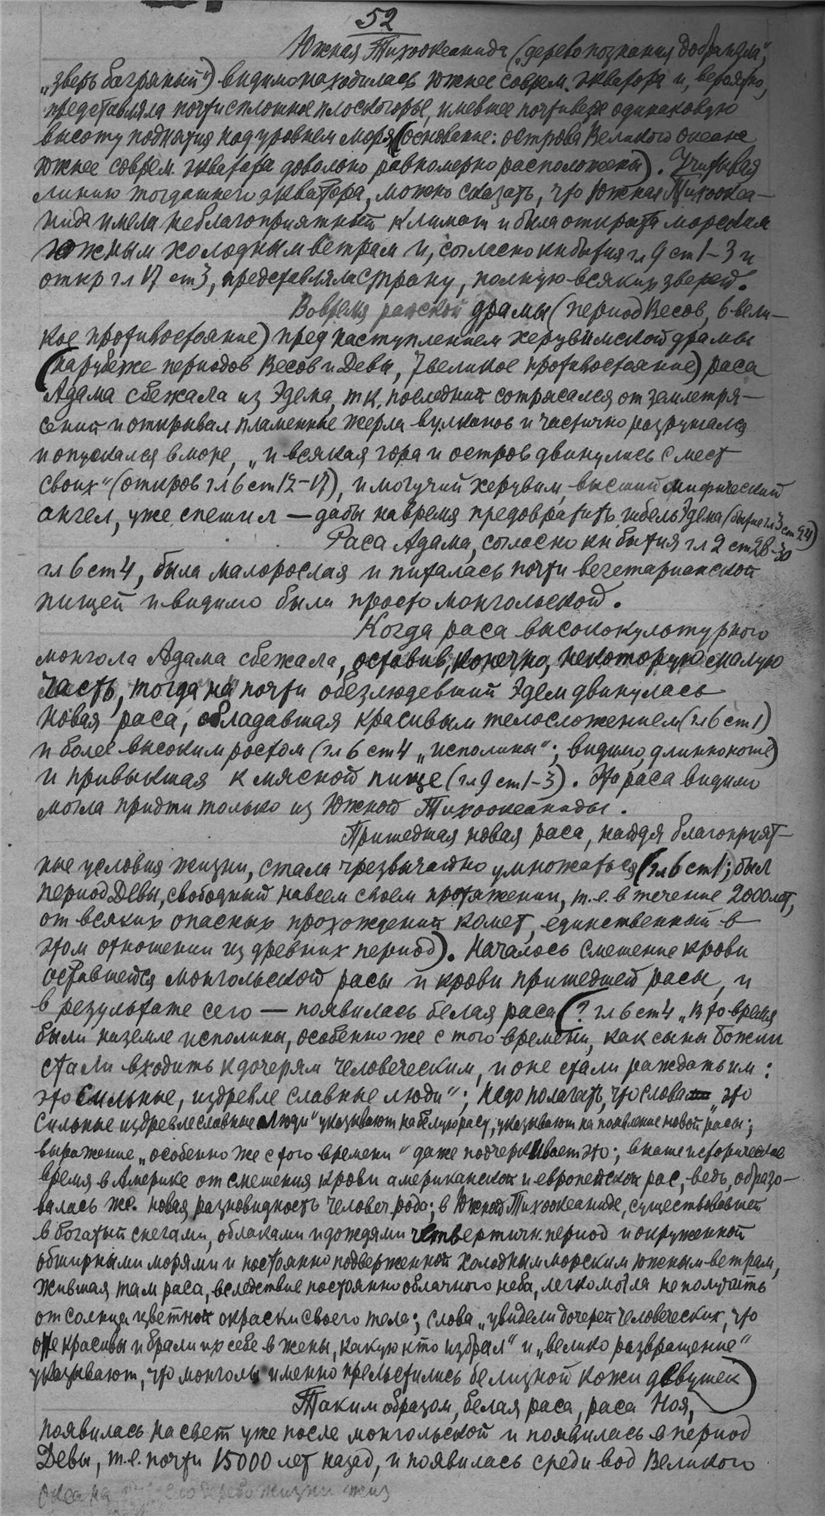 52
Южная Тихоокеанида („дерево познания добра и зла“,
„зверь багряный“) видимо находилась южнее соврем. экватора и, вероятно,
представляла почти сплошное плоскогорье, имевшее почти везде одинаковую
высоту поднятия над уровнем моря (основание: острова Великого океана
южнее соврем. экватора довольно равномерно расположены). Учитывая
линию тогдашнего экватора, можно сказать, что Южная Тихоокеа–
нида имела неблагоприятный климат и была открыта морским
южным холодным ветрам и, согласно кн бытия гл 9 ст 1–3 и
откр гл 17 ст 3, представляла страну, полную всяких зверей.
Во время райской драмы (период Весов, 6 вели–
кое противостояние) пред наступлением херувимской драмы
(на рубеже периодов Весов и Девы, 7 великое противостояние) раса
Адама сбежала из Эдема, т.к. последний сотрясался от землетря–
сений и открывал пламенные жерла вулканов и частично разрушался
и опускался в море, „и всякая гора и остров двинулись с мест
своих“ (откров гл 6 ст 12–17), и могучий херувим, высший мифический
ангел, уже спешил — дабы на время предовратить гибель Эдема (бытие гл 3 ст 24)
Раса Адама, согласно кн бытия гл 2 ст 28–30
гл 6 ст 4, была малорослая и питалась почти вегетарианской
пищей и видимо была просто монгольской.
Когда раса высококультурного
монгола Адама сбежала, оставив, конечно, некоторую малую
часть, тогда на почти обезлюдевший Эдем двинулась
новая раса, обладавшая красивым телосложением (гл 6 ст 1)
и более высоким ростом (гл 6 ст 4 „исполины“; видимо, длинноногие)
и привыкшая к мясной пище (гл 9 ст 1–3). Эта раса видимо
могла придти только из Южной Тихоокеаниды.
Пришедшая новая раса, найдя благоприят–
ные условия жизни, стала чрезвычайно умножаться (гл 6 ст 1; был
период Девы, свободный на всем своем протяжении, т.е. в течение 2000 лет,
от всяких опасных прохождений комет, единственный в
этом отношении из древних период). Началось смешение крови
оставшейся монгольской расы и крови пришедшей расы, и
в результате сего — появилась белая раса (? гл 6 ст 4 „В то время
были на земле исполины, особенно же с того времени, как сыны божии
стали входить к дочерям человеческим, и оне стали раждать им:
это сильные, издревле славные люди“; надо полагать, что слова „это
сильные издревле славные люди“ указывают на белую расу, указывают на появление новой расы;
выражение „особенно же с того времени“ даже подчеркивает это; в наше историческое
время в Америке от смешения крови американской и европейской рас, ведь, образо–
валась же новая разновидность человеч. рода; в Южной Тихоокеаниде, существовавшей
в богатый снегами, облаками и дождями четвертичн. период и окруженной
обширными морями и постоянно подверженной холодным морским южным ветрам,
жившая там раса, вследствие постоянно облачного неба, легко могла не получить
от солнца цветной окраски своего тела; слова „увидели дочерей человеческих, что
оне красивы и брали их себе в жены, какую кто избрал“ и „велико развращение“
указывают, что монголы именно прельстились белизной кожи девушек)
Таким образом, белая раса, раса Ноя,
появилась на свет уже после монгольской и появилась в период
Девы, т.е. почти 15000 лет назад, и появилась среди вод Великого
океана дерево жизни